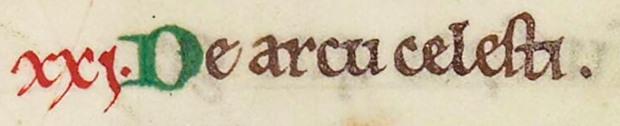 xxi. De arcu celesti.